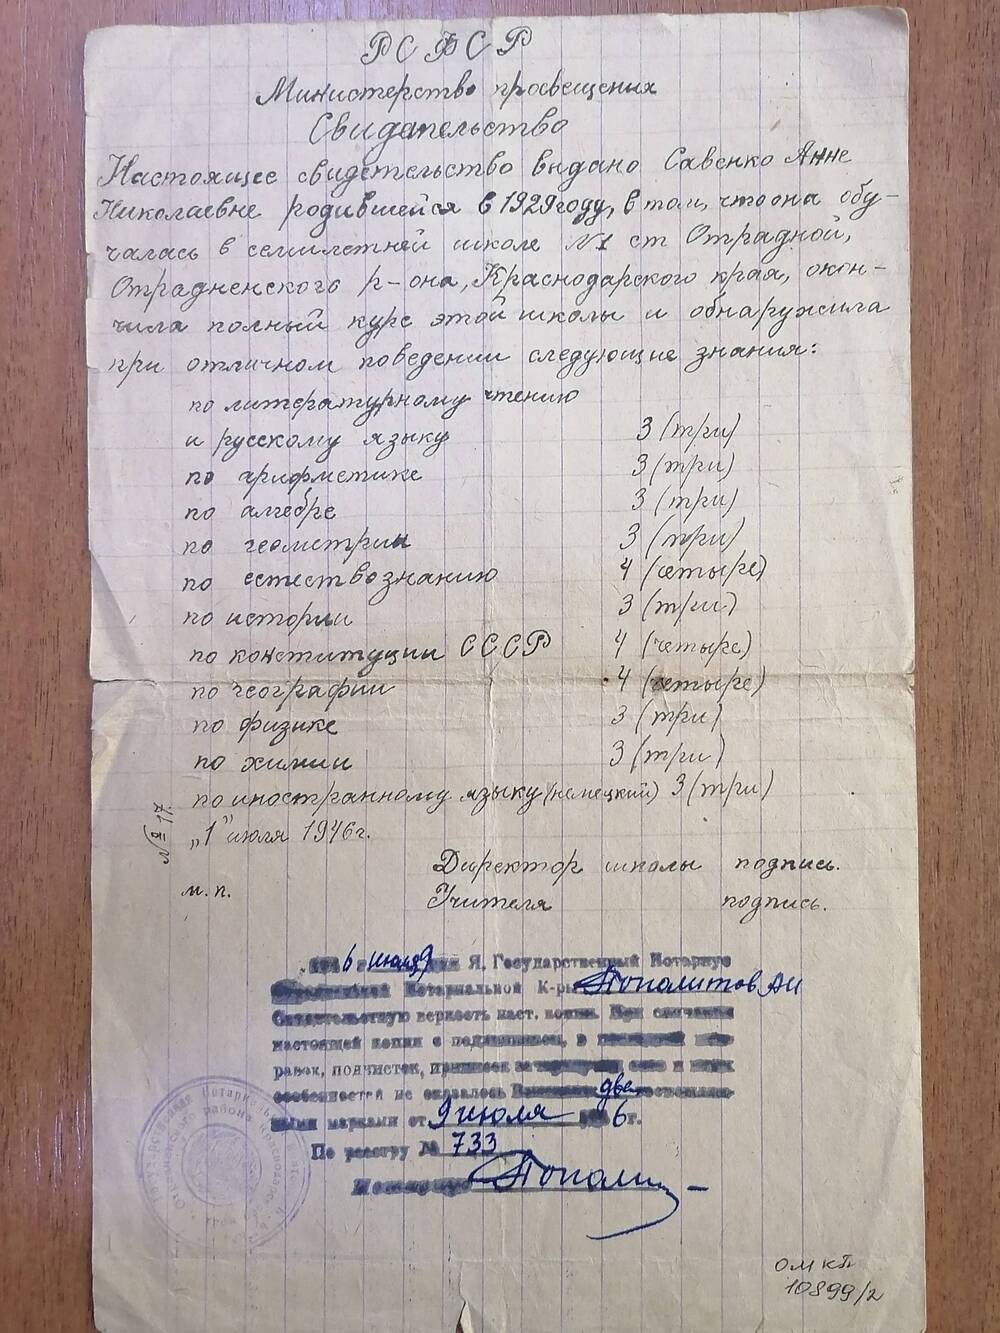 РСФСР
Министерство просвещения
Свидательство
Настоящее свидетельство выдано Савенко Анне
Николаевне родившейся в 1929 году, в том, что она обу-
чалась в семилетней школе №1 ст Отрадной,
Отрадненского р-она, Краснодарского края, окон-
чила полный курс этой школы и обнаружила
при отличном поведении следующие знания:
по литературному чтению
и русскому языку 3 (три)
по арифметике 3 (три)
по алгебре 3 (три)
по геометрии 3 (три)
по естествознанию 4 (четыре)
по истории 3 (три)
по конституции СССР 4 (четыре)
по географии 4 (четыре)
по физике 3 (три)
по химии 3 (три)
по иностранному языку (немецкий) 3 (три)
„1" июля 1946г.
№ 17.
Директор школы подпись.
м.п.
Учителя подпись.
Я, Государственный Нотариус
Нотариальной К-ры
верность наст. копии. При сличении
настоящей копии с подлинником, в
равок, подчисток, приписок
особенностей не оказалось две
марками от 9 июля 6г.
По реестру № 733
Нотариус
ОМ КП
10899/2